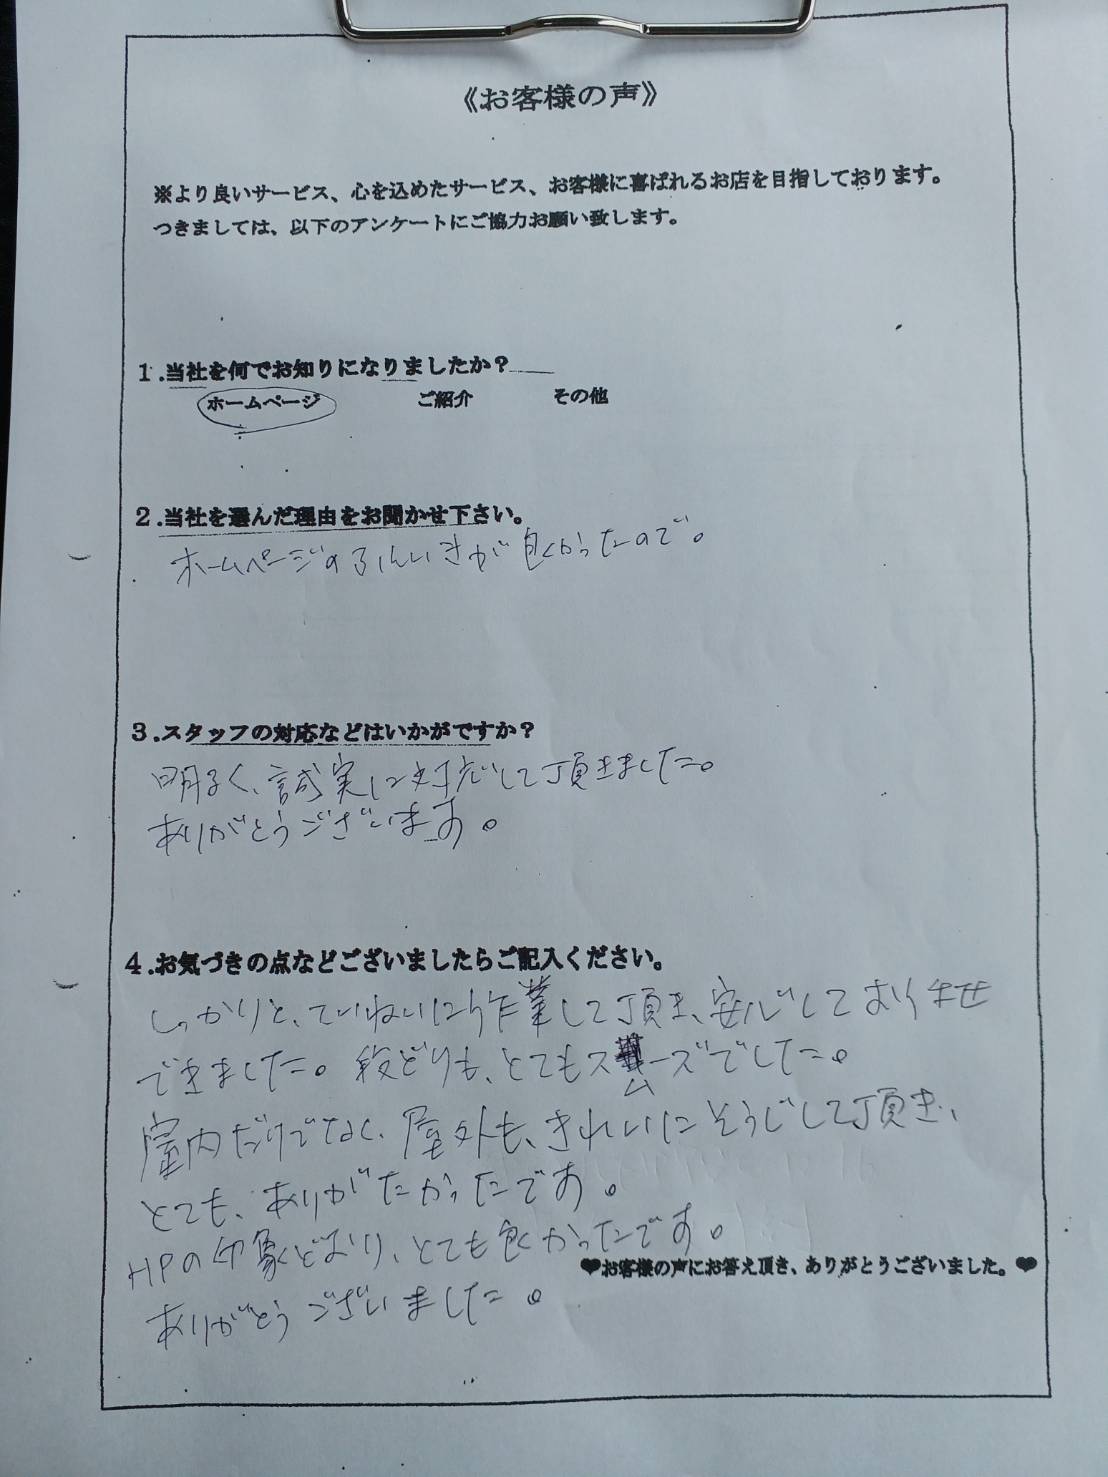 《お客様の声》
※より良いサービス、心を込めたサービス、お客様に喜ばれるお店を目指しております。
つきましては、以下のアンケートにご協力お願い致します。
1.当社を何でお知りになりましたか？
ホームページ ご紹介 その他
2.当社を選んだ理由をお聞かせ下さい。
ホームページのふんいきが良くかったので。
3.スタッフの対応などはいかがですか？
明るく、誠実に対応して頂きました。
ありがとうございます。
4.お気づきの点などございましたらご記入ください。
しっかりと、ていねいに作業して頂き、安心しておりませ
できました。段どりも、とてもスムーズでした。
室内だけでなく、屋外も、きれいにそうじして頂き、
とても、ありがたかったです。
HPの印象どおり、とても良くかったです。
♥お客様の声にお答え頂き、ありがとうございました。♥
ありがとうございました。